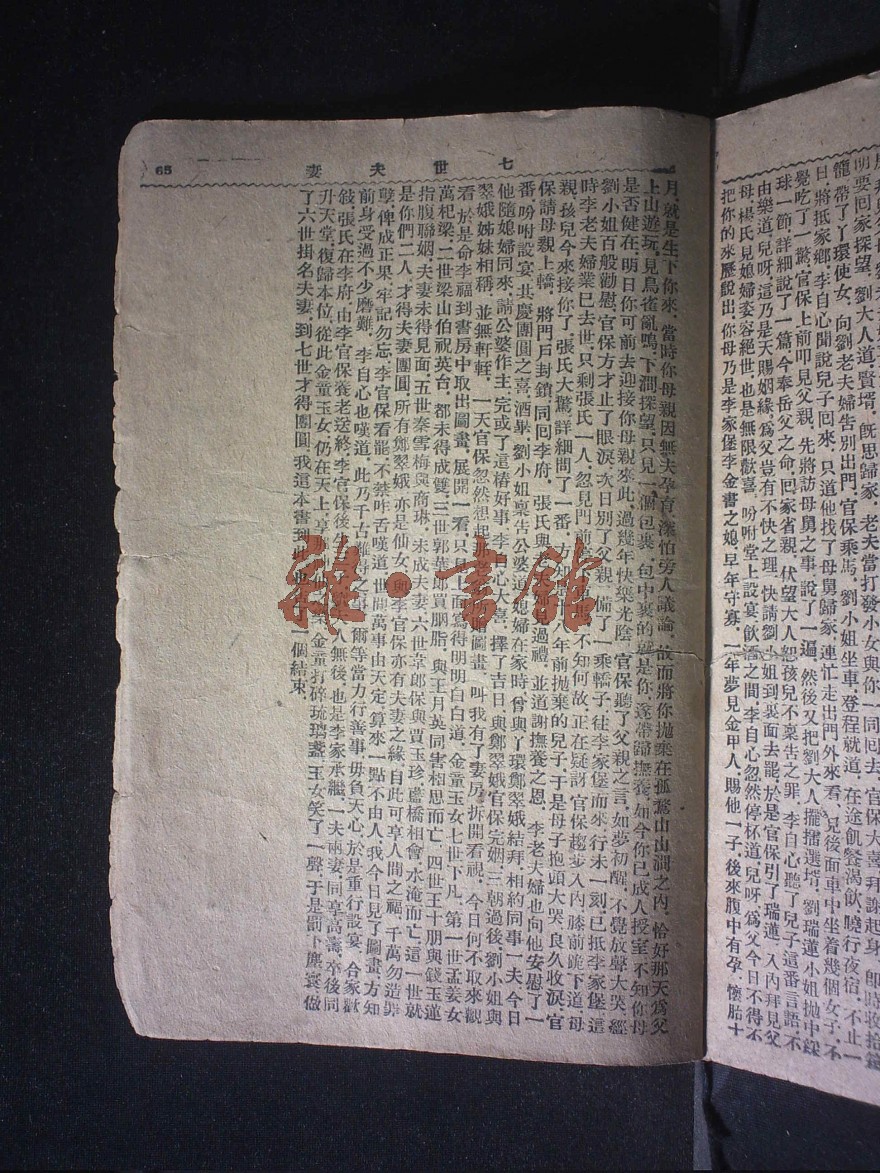 明要回家探望,劉大人道,賢壻,旣思歸家,老夫當打發小女與你一同回去,官保大喜,拜謝起身,卽時收拾
籠,帶了丫環使女,向劉老夫婦吿別出門,官保乘馬,劉小姐坐車,登程就道,在途飢餐渴飮,曉行夜宿,不止一
日,將抵家鄉,李自心聞說兒子回來,只道他找了母舅歸家,連忙走出門外來看,見後面車中坐着幾個女子,不
覺吃了一驚,官保上前叩見父親,先將訪母舅之事,說了一遍,然後又把劉大人擺擂選壻,劉瑞蓮小姐拋中綵
球一節,詳細說了一篇,今奉岳父之命,回家省親,伏望大人恕孩兒不稟吿之罪,李自心聽了兒子這番言語,不
由樂道,兒呀,這乃是天賜姻緣,爲父豈有不快之理,快請劉小姐到裏面去罷,於是官保引了瑞蓮,入內拜見父
母,楊氏見媳婦姿容絕世,也是無限歡喜,吩咐堂上設宴,飮酒之間,李自心忽然停杯道,兒呀,爲父今日不得不
把你的來歷說出,你母乃是李家堡李金書之媳,早年守寡,一年夢見金甲人,賜他一子,後來腹中有孕,懷胎十
七世夫妻
65
月,就是生下你來,當時你母親因無夫孕育,深怕旁人議論,故而將你拋棄在孤鶩山山澗之內,恰好那天爲父
上山遊玩,見鳥雀亂鳴,下澗探望,只見一個包裹,包中裹的就是你,遂帶歸撫養,如今你已成人授室,不知你母
是否健在,明日你可前去迎接你母親來此,過幾年快樂光陰,官保聽了父親之言,如夢初醒,不覺放聲大哭,經
劉小姐百般勸慰,官保方才止了眼淚,次日別了父親,備了一乘轎子,往李家堡而來,行未一刻,已抵李家堡,這
時李老夫婦業已去世,只剩張氏一人,忽見門前馬,不知何故,正在疑訝,官保趨步入內,膝前跪下道,母
親,孩兒今來接你了,張氏大驚,詳細問了一番,方知年前拋棄的兒子,于是母子抱頭大哭,良久收淚,官
保請母親上轎,將門戶封鎖,同回李府,張氏與老夫見過禮,並道謝撫養之恩,李老夫婦也向他安慰了一
番,吩咐設宴,共慶團圓之喜,酒畢,劉小姐稟吿公婆道,媳婦在家時,曾與丫環鄭翠娥結拜,相約同事一夫,今日
他隨媳婦同來,請公婆作主,完成了這樁好事,李自心大喜,擇了吉日,與鄭翠娥官保完姻,三朝過後,劉小姐與
翠娥姊妹相稱,並無軒輊,一天官保忽然想起那老所贈圖畫,叫我有了妻房,拆開看視,今日何不取來觀
看,於是命李福到書房中取出圖畫,展開一看,只見上面寫得明明白白道,金童玉女七世下凡,第一世孟姜女
萬杞梁,二世梁山伯祝英台,都未得成雙,三世郭華郎買胭脂,與王月英同害相思而亡,四世王十朋與錢玉蓮
指腹聯姻,夫妻未得見面,五世秦雪梅與商琳,未成夫妻,六世韋郎保與賈玉珍,藍橋相會,水淹而亡,這一世就
是你們二人,才得夫妻團圓,所有鄭翠娥,亦是仙女,與李官保亦有夫妻之緣,自此可享人間之福,千萬勿造罪
孽,俾成正果,牢記勿忘,李官保看罷,不禁咋舌嘆道,世間萬事由天定,算來一點不由人,我今日見了圖畫,方知
前身受過不少磨難,李自心也嘆道,此乃千古難得之事,爾等當力行善事,毋負天心,於是重行設宴,合家歡
敍,張氏在李府,由李官保養老送終,李官保後生人無後,也是李家承繼,一夫兩妻,同享高壽,卒後同
升天堂,復歸本位,從此金童玉女仍在天上,享那金童打碎琉璃盞,玉女笑了一聲,于是罰下塵寰,做
了六世掛名夫妻,到七世才得團圓,我這本書到此也一個結束,
雜·書館